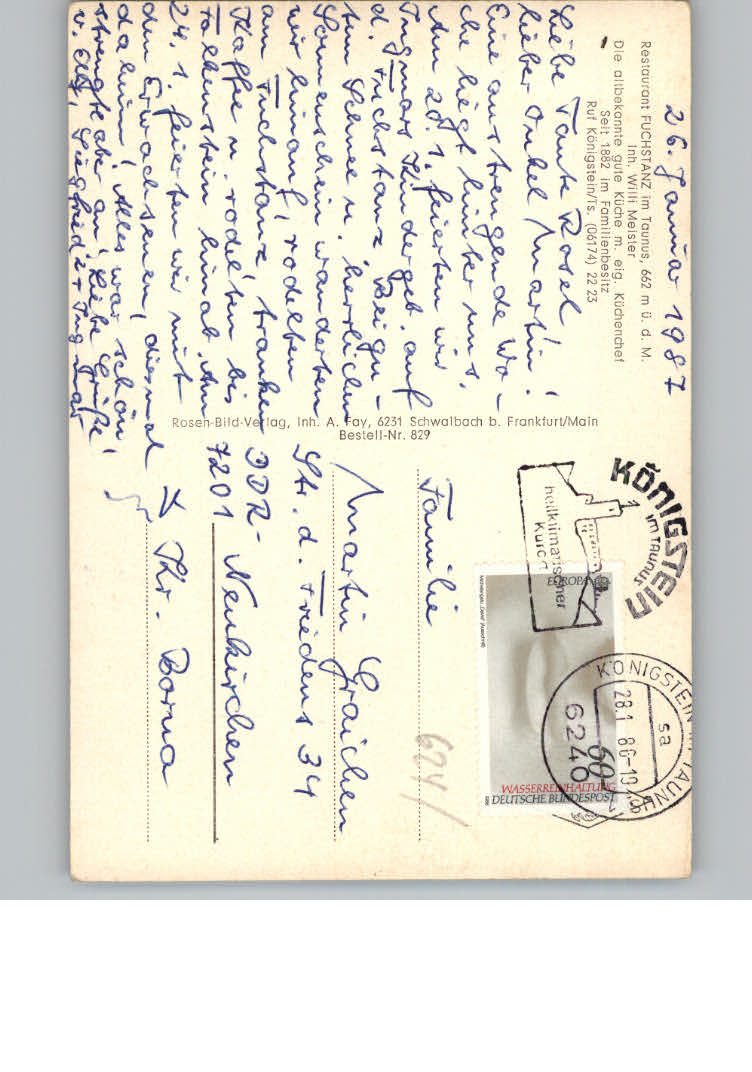 26. Januar 1987
Restaurant FUCHSTANZ im Taunus, 662 m ü. d. M.
Inh. Willi Meister
Die altbekannte gute Küche m. eig. Küchenchef
Seit 1882 im Familienbesitz
Ruf Königstein/Ts. (06174) 22 23
Liebe Tante Rosel
lieber Onkel Martin!
Eine anstrengende Wo-
che liegt hinter uns.
Am 20.1. feierten wir
Ingmars Kindergeb. auf
d. Fuchstanz. Bei gu-
tem Schnee u. herrlichem
Sonnenschein wanderten
wir hinauf, rodelten
am Fuchstanz, tranken
Kaffe u. rodelten bis
Falkenstein hinab. Am
24.1. feierten wir mit
den Erwachsenen, diesmal
daheim. Alles war schön,
strengte aber an. Liebe Grüße
v. Siegfried + Ingmar
Rosen-Bild-Verlag, Inh. A. Fay, 6231 Schwalbach b. Frankfurt/Main
Bestell-Nr. 829
KÖNIGSTEIN
im TAUNUS
heilklimatischer
Kurort
EUROPA
60
WASSERREINHALTUNG
DEUTSCHE BUNDESPOST
KÖNIGSTEIN IM TAUNUS
sa
28.1.86-19
6240
Familie
Martin Graichen
Str. d. Friedens 34
DDR- Neukirchen
7201
Kr. Borna
624/